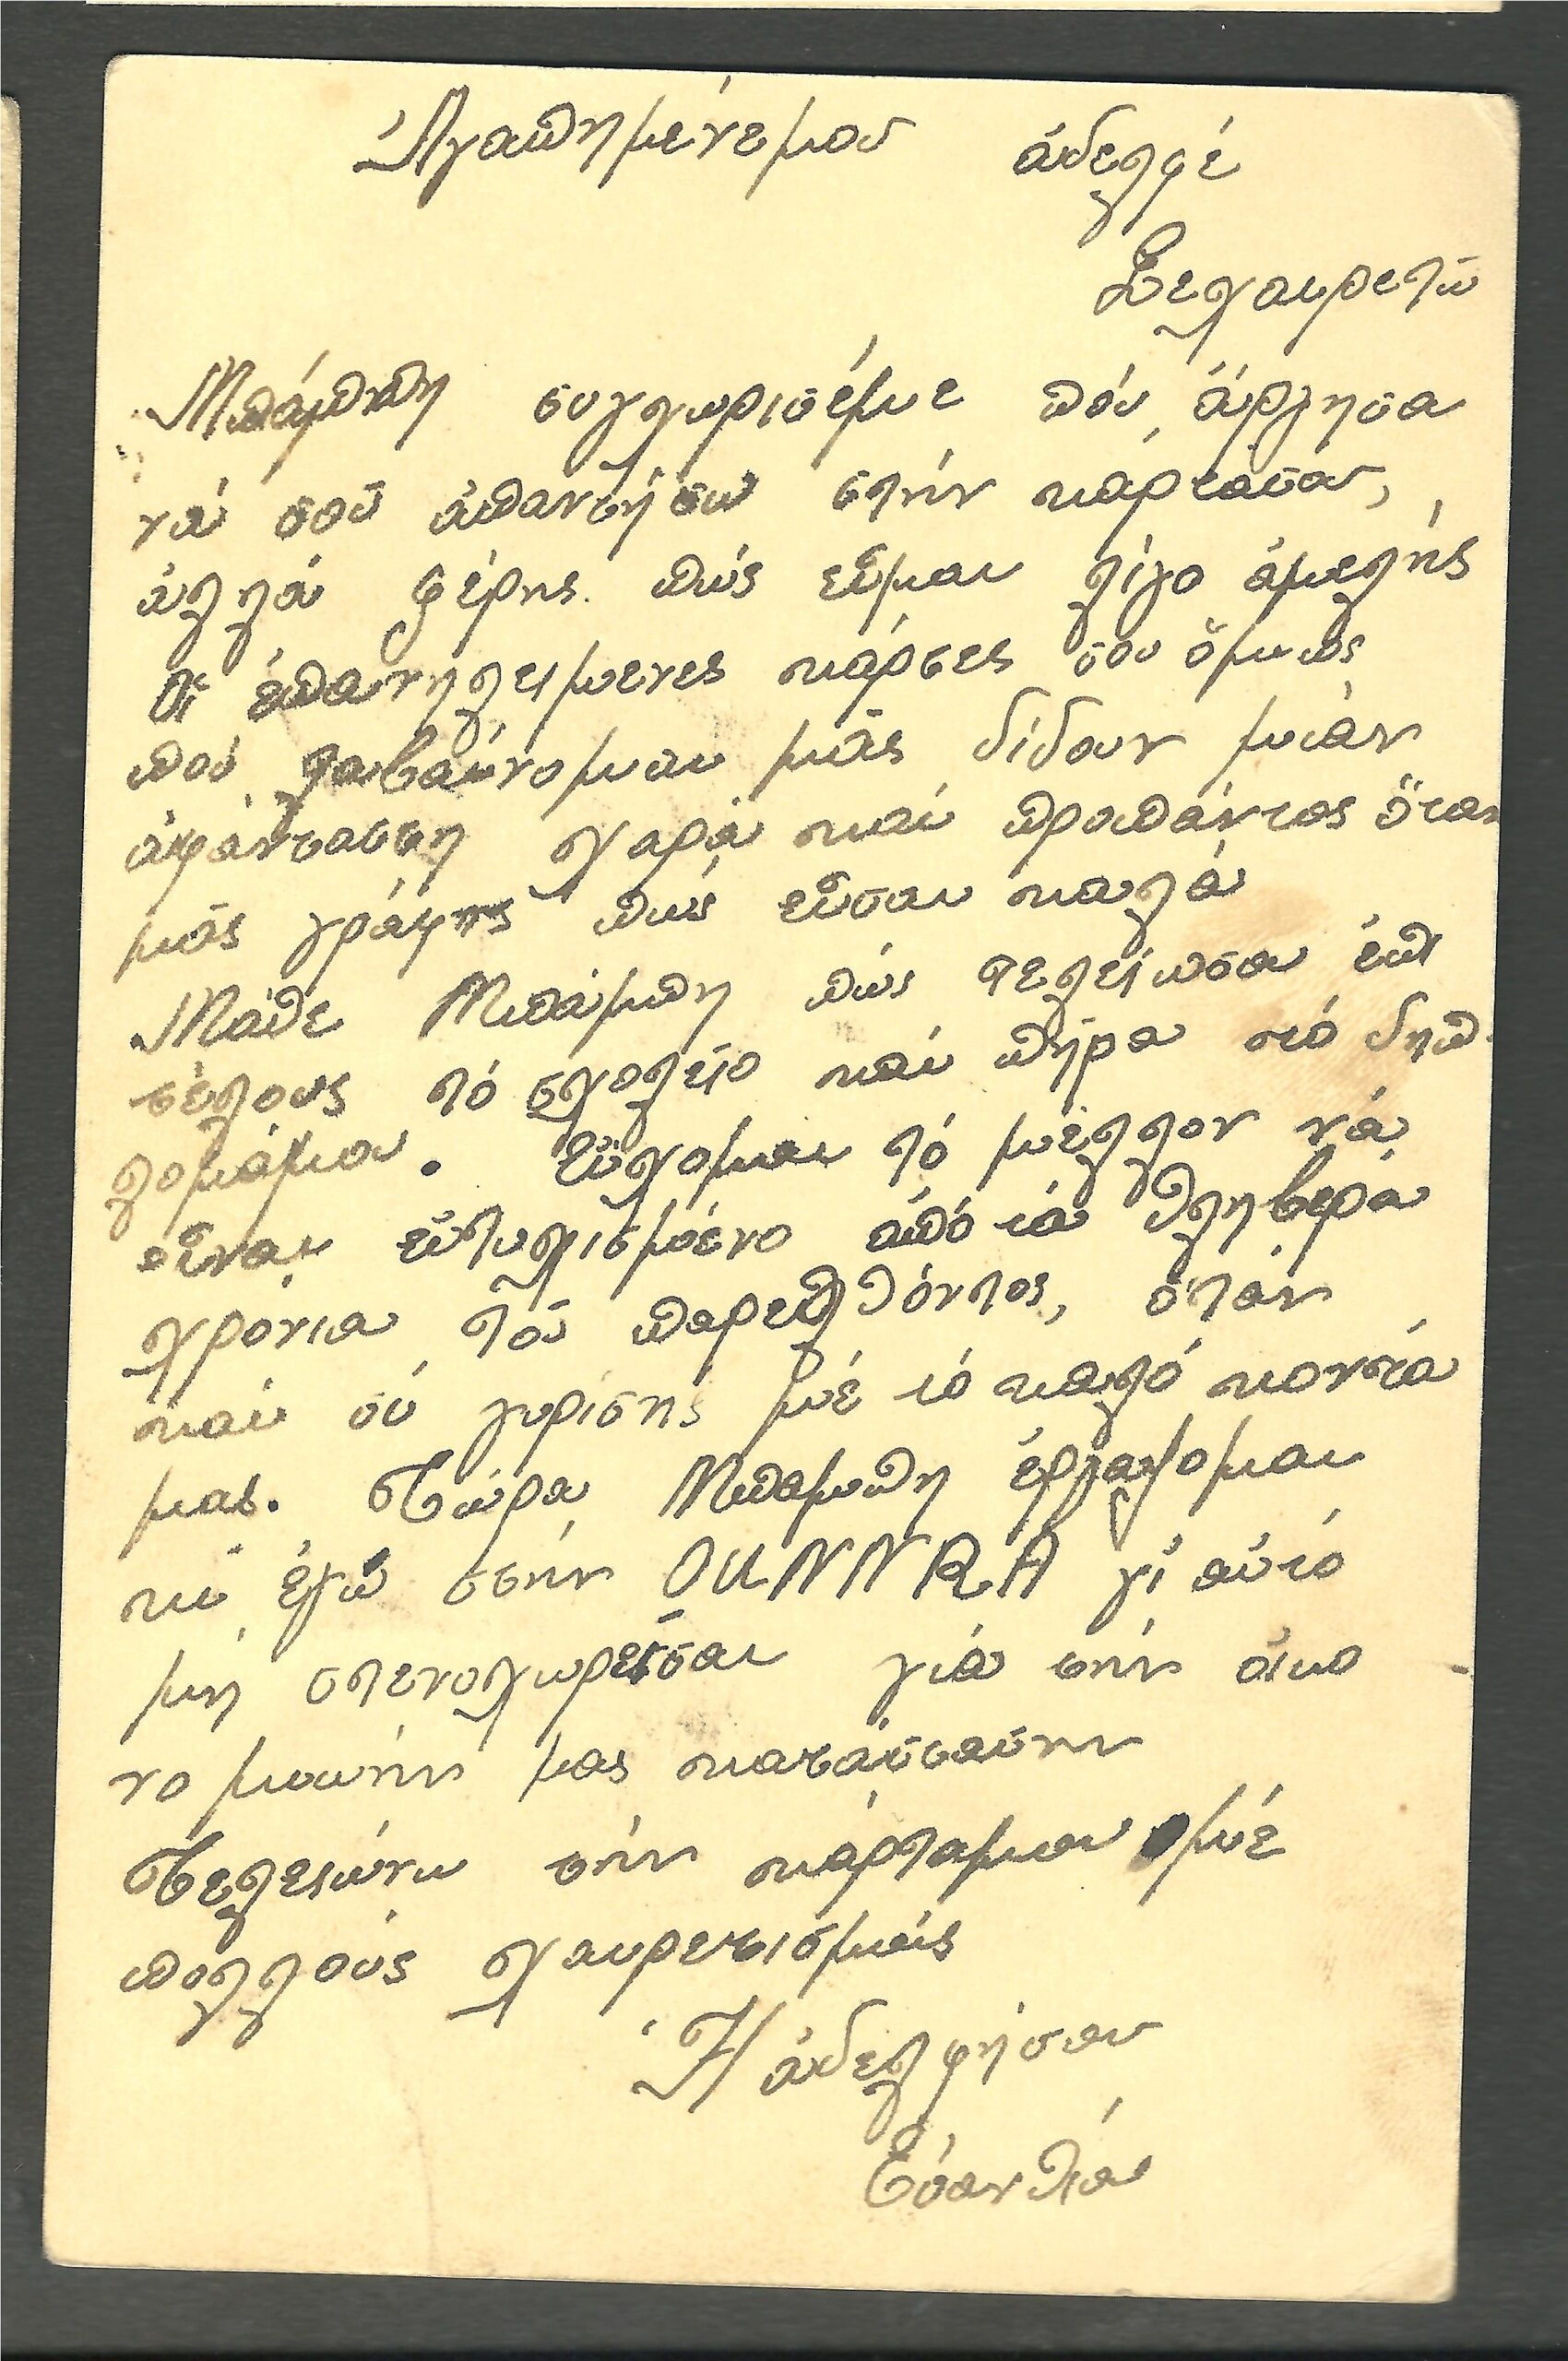 Ἀγαπημένεμου ἀδελφέ
Σεχαιρετῶ
Μπάμπη συγχωρισέμε πού ἄργησα
νά σοῦ ἀπαντήσω στήν κάρτασου,
ἀλλά ξέρης πώς εἶμαι λίγο ἀμελής
Οἱ ἐπανηλειμενες κάρτες σου ὅμως
πού λαβαίνομαι μᾶς δίδουν μιάν
ἀφάνταστη χαρά καί προπάντος ὅταν
μᾶς γράφης πώς εἶσαι καλά
Μάθε Μπάμπη πώς τελείωσα ἐπί
τέλους τό σχολεῖο καί πῆρα τό διπ
λομάμου. Εὔχομαι τό μέλλον νά
εἶναι εὐτυχισμένο ἀπό τά θλιβερά
χρόνια τοῦ παρελθόντος, ὅταν
καί σύ γυρίσης μέ τό καλό κοντά
μας. Τώρα Μπαμπη ἐργαζομαι
κι ἐγώ στήν OUNNRA γι αὐτό
μή στενοχωρεῖσαι γιά τήν οἰκο
νομικήν μας κατάστασιν
Τελειώνω τήν κάρταμου μέ
πολλούς χαιρετισμούς
Ἡ ἀδελφήσου
Εὐανθία